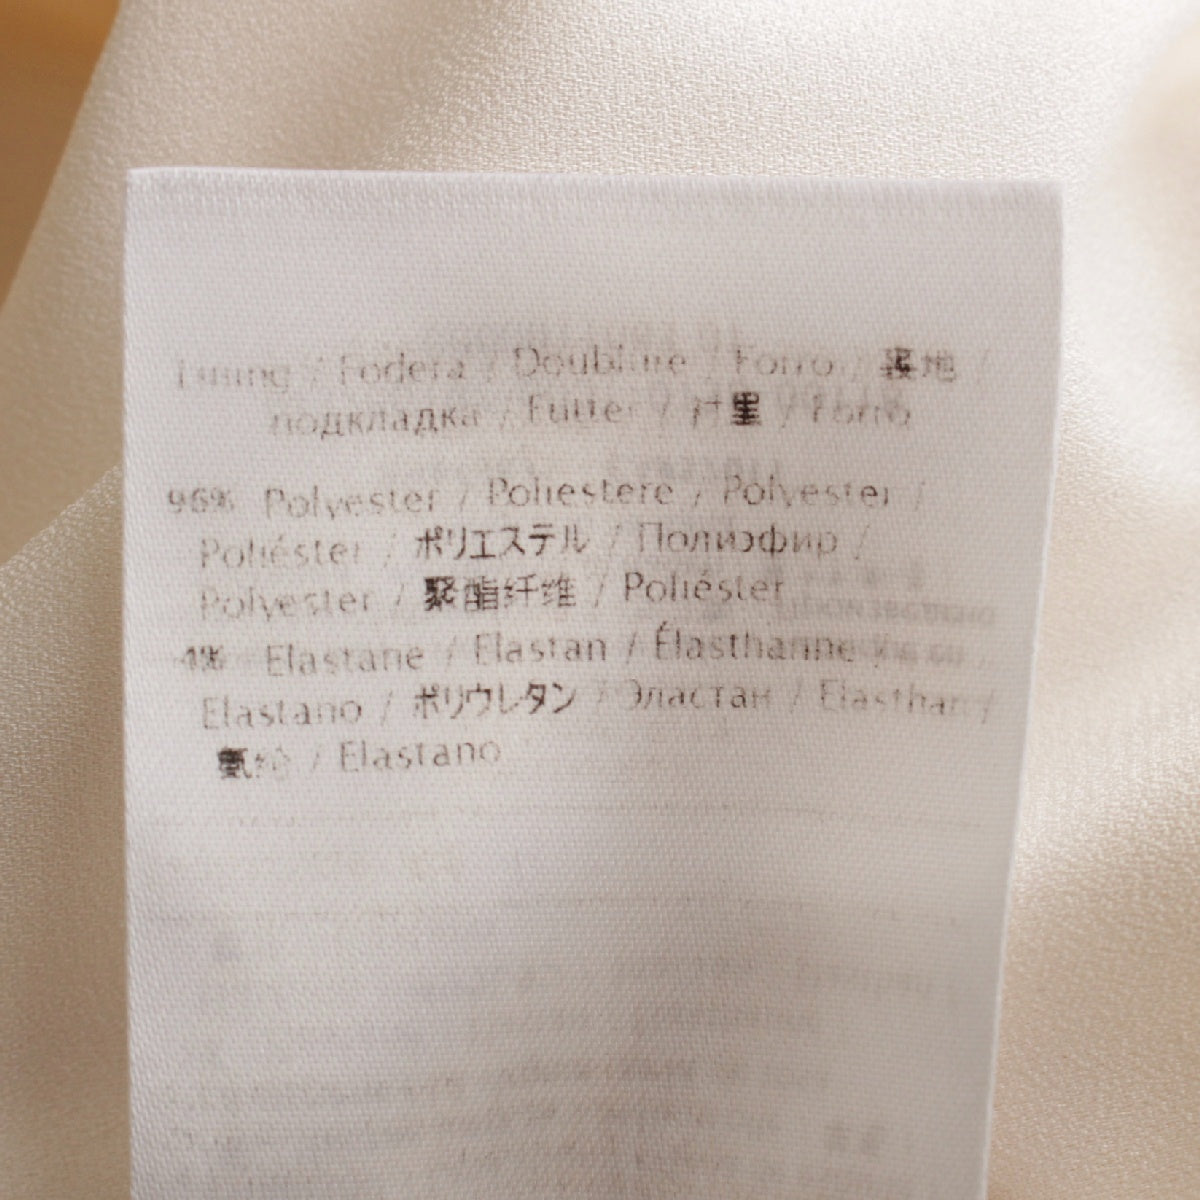 Lining / Fodera / Doublure / Forro / 裏地 /
подкладка / Futter / 衬里 / Forro
96% Polyester / Poliestere / Polyester /
Poliéster / ポリエステル / Полиэфир /
Polyester / 聚酯纤维 / Poliéster
4% Elastane / Elastan / Élasthanne /
Elastano / ポリウレタン / Эластан / Elasthan /
氨纶 / Elastano